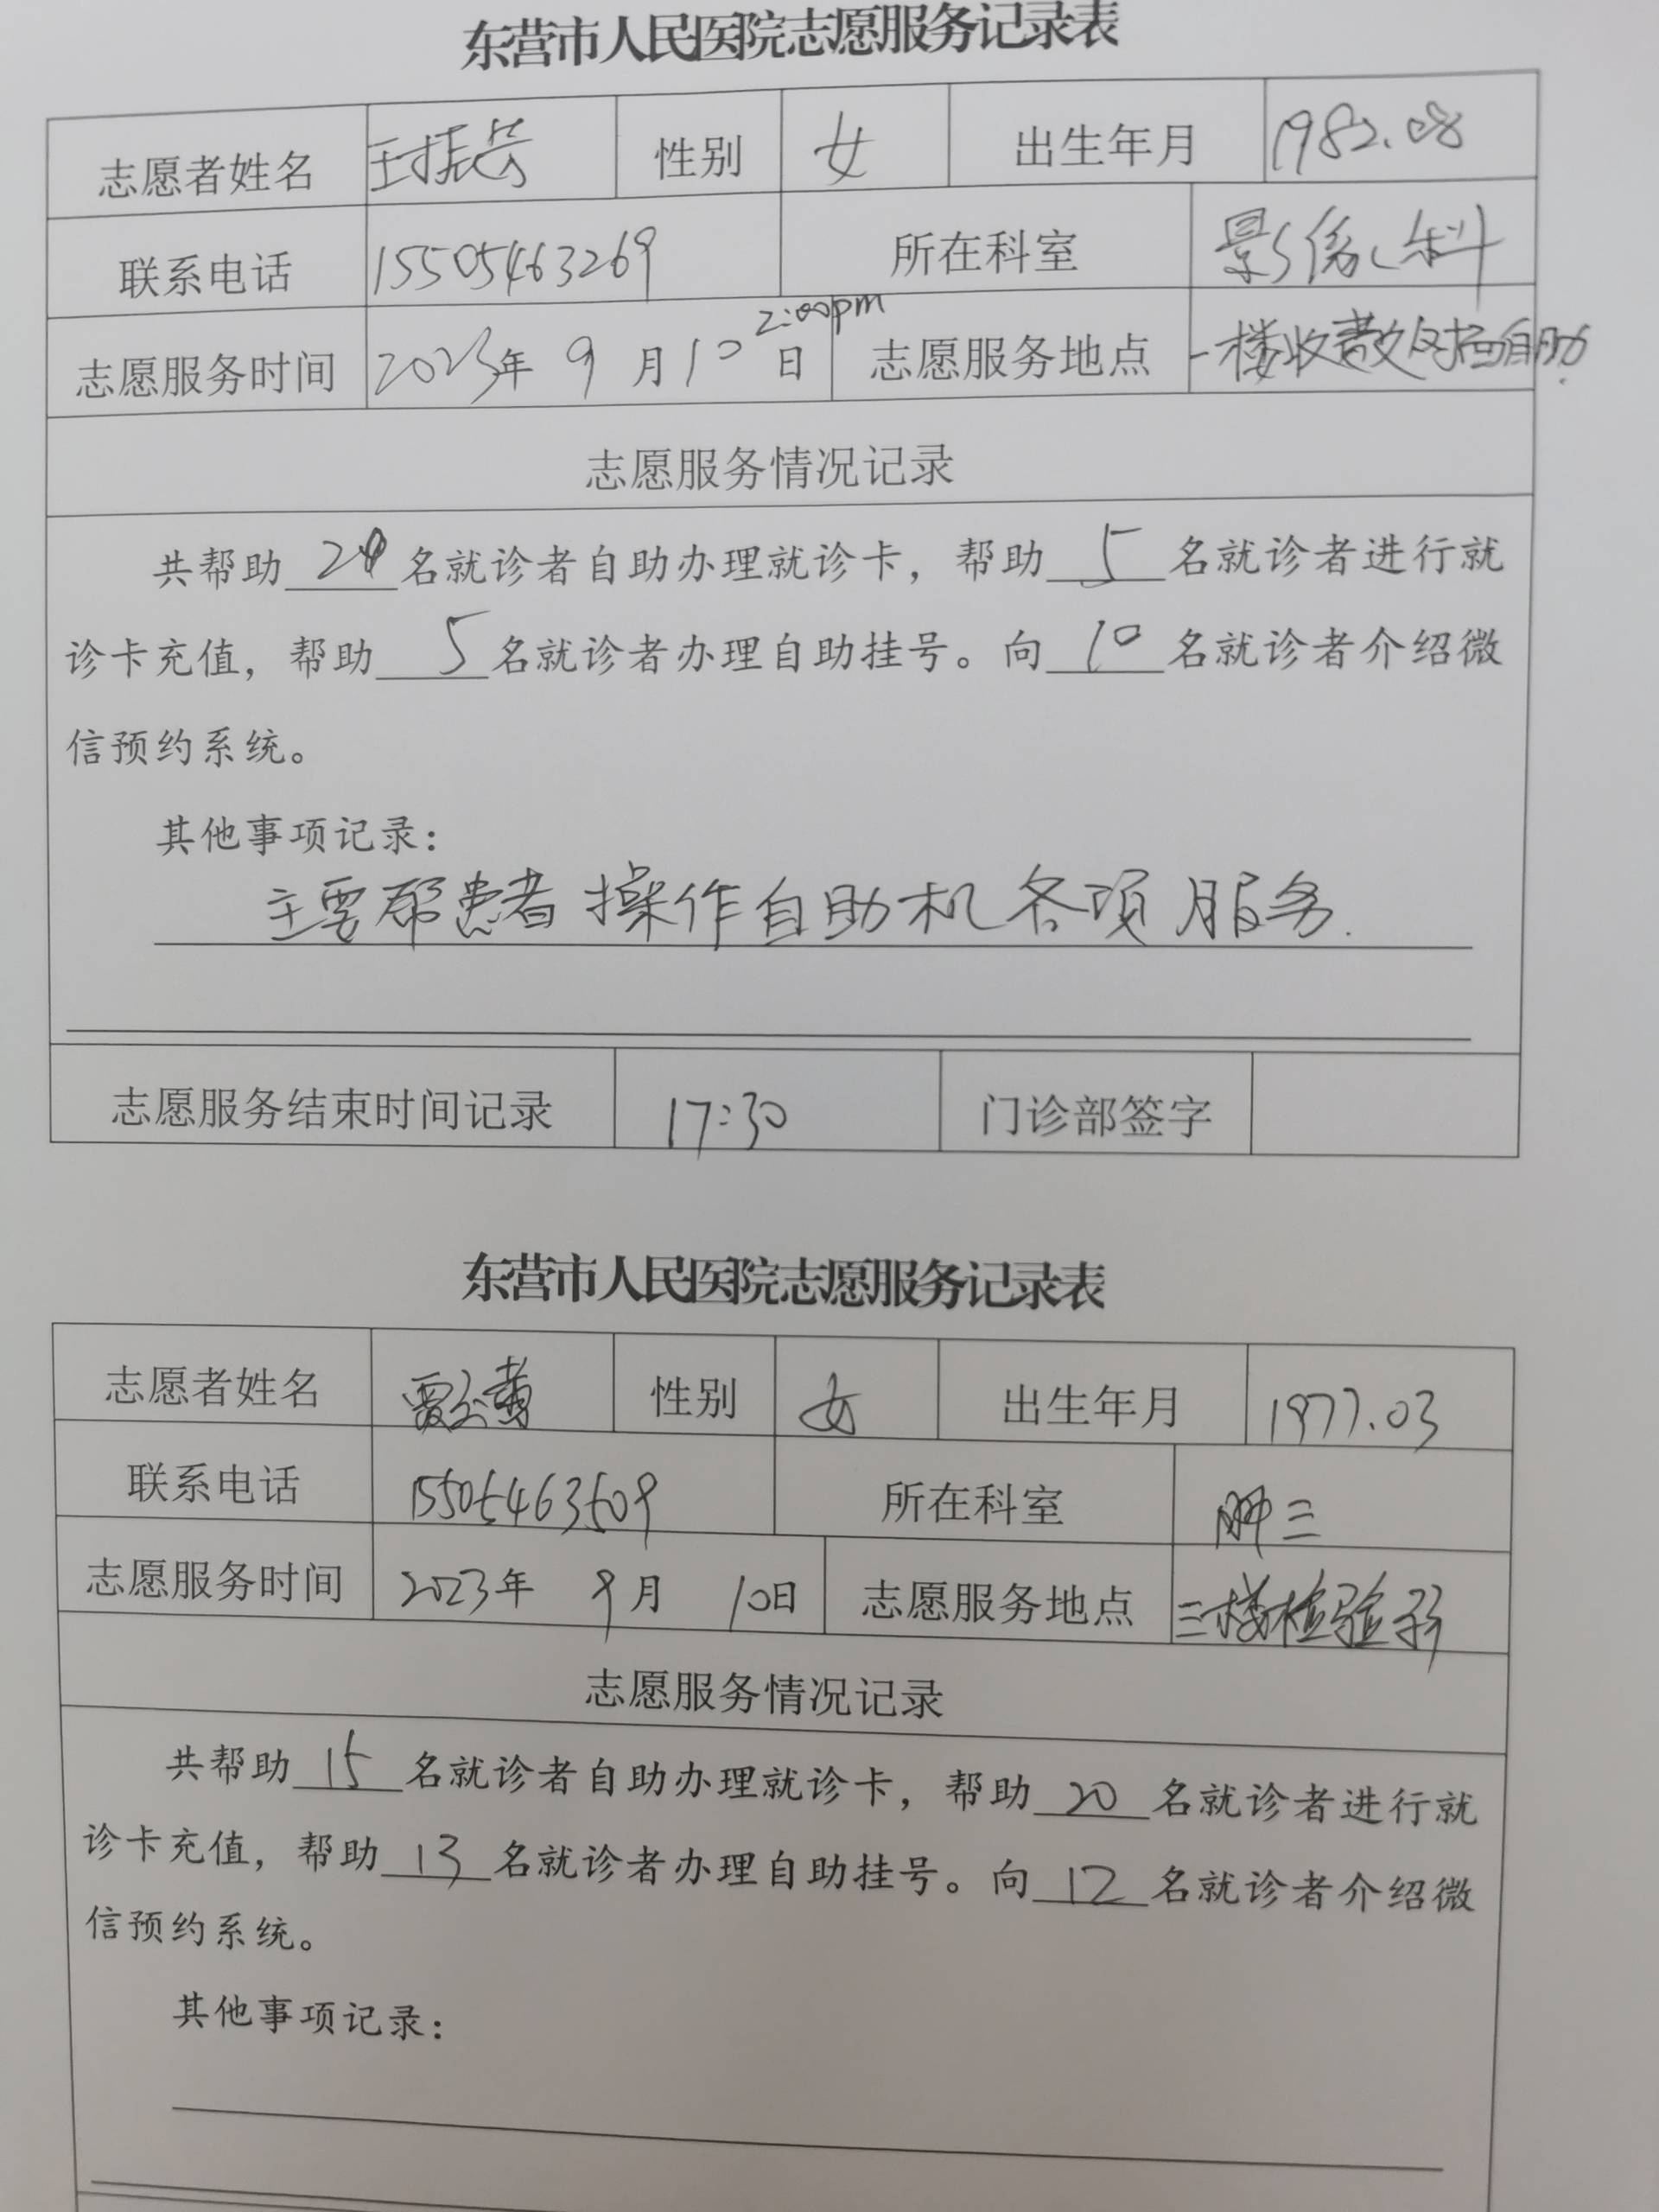 东营市人民医院志愿服务记录表
志愿者姓名 王振芸 性别 女 出生年月 1982.08
联系电话 15505463269 所在科室 影像科
志愿服务时间 2023年 9 月 10 日 2:00pm 志愿服务地点 一楼收费处对面自助
志愿服务情况记录
共帮助 20 名就诊者自助办理就诊卡，帮助 5 名就诊者进行就
诊卡充值，帮助 5 名就诊者办理自助挂号。向 10 名就诊者介绍微
信预约系统。
其他事项记录：
主要帮患者操作自助机各项服务.
志愿服务结束时间记录 17:30 门诊部签字
东营市人民医院志愿服务记录表
志愿者姓名 性别 女 出生年月 1977.03
联系电话 15505463509 所在科室 肿三
志愿服务时间 2023年 9月 10日 志愿服务地点 三楼检验科
志愿服务情况记录
共帮助 15 名就诊者自助办理就诊卡，帮助 20 名就诊者进行就
诊卡充值，帮助 13 名就诊者办理自助挂号。向 12 名就诊者介绍微
信预约系统。
其他事项记录：